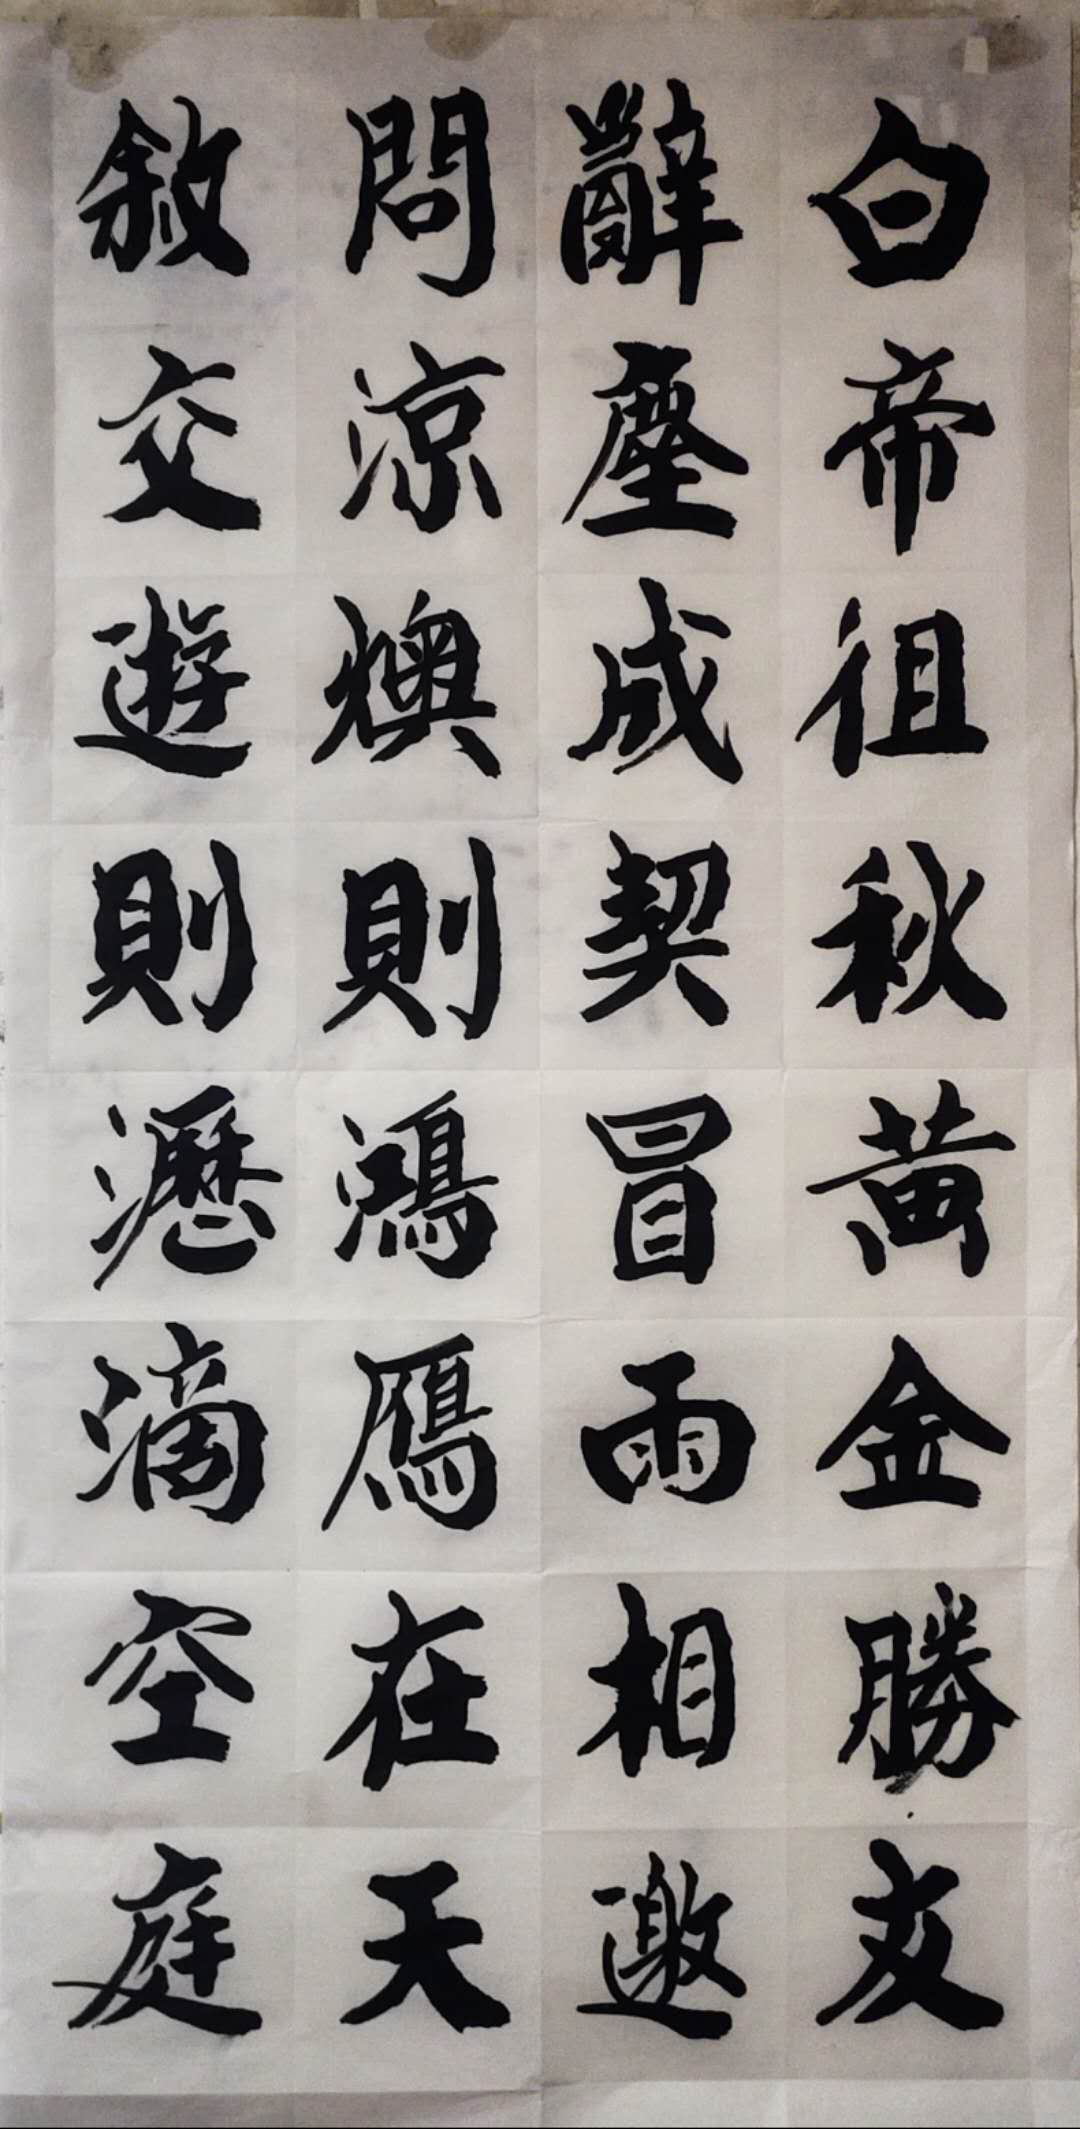 白帝徂秋黄金勝友
辭塵成契冒雨相邀
問涼燠則鴻鴈在天
敘交遊則瀝滴空庭